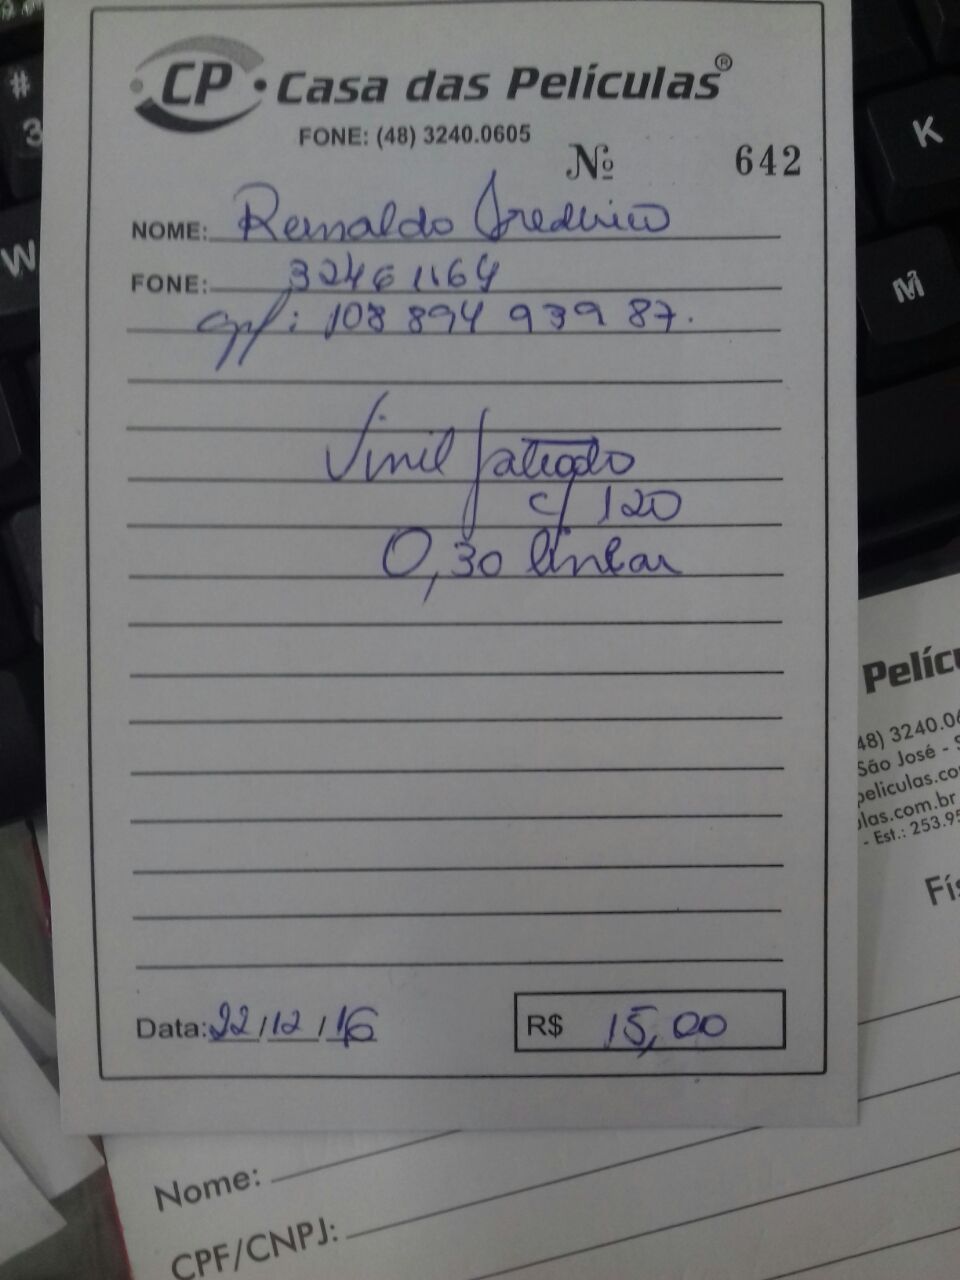 CP Casa das Películas®
FONE: (48) 3240.0605
Nº 642
NOME: Reinaldo Frederico
FONE: 32461164
cpf: 108 894 939 87.
Vinil jateado
c/ 120
0,30 linear
Data: 22/12/16 R$ 15,00
Pelícu
48) 3240.06
São José - S
peliculas.co
ulas.com.br
- Est.: 253.95
Fís
Nome:
CPF/CNPJ:
#
3
W
K
M